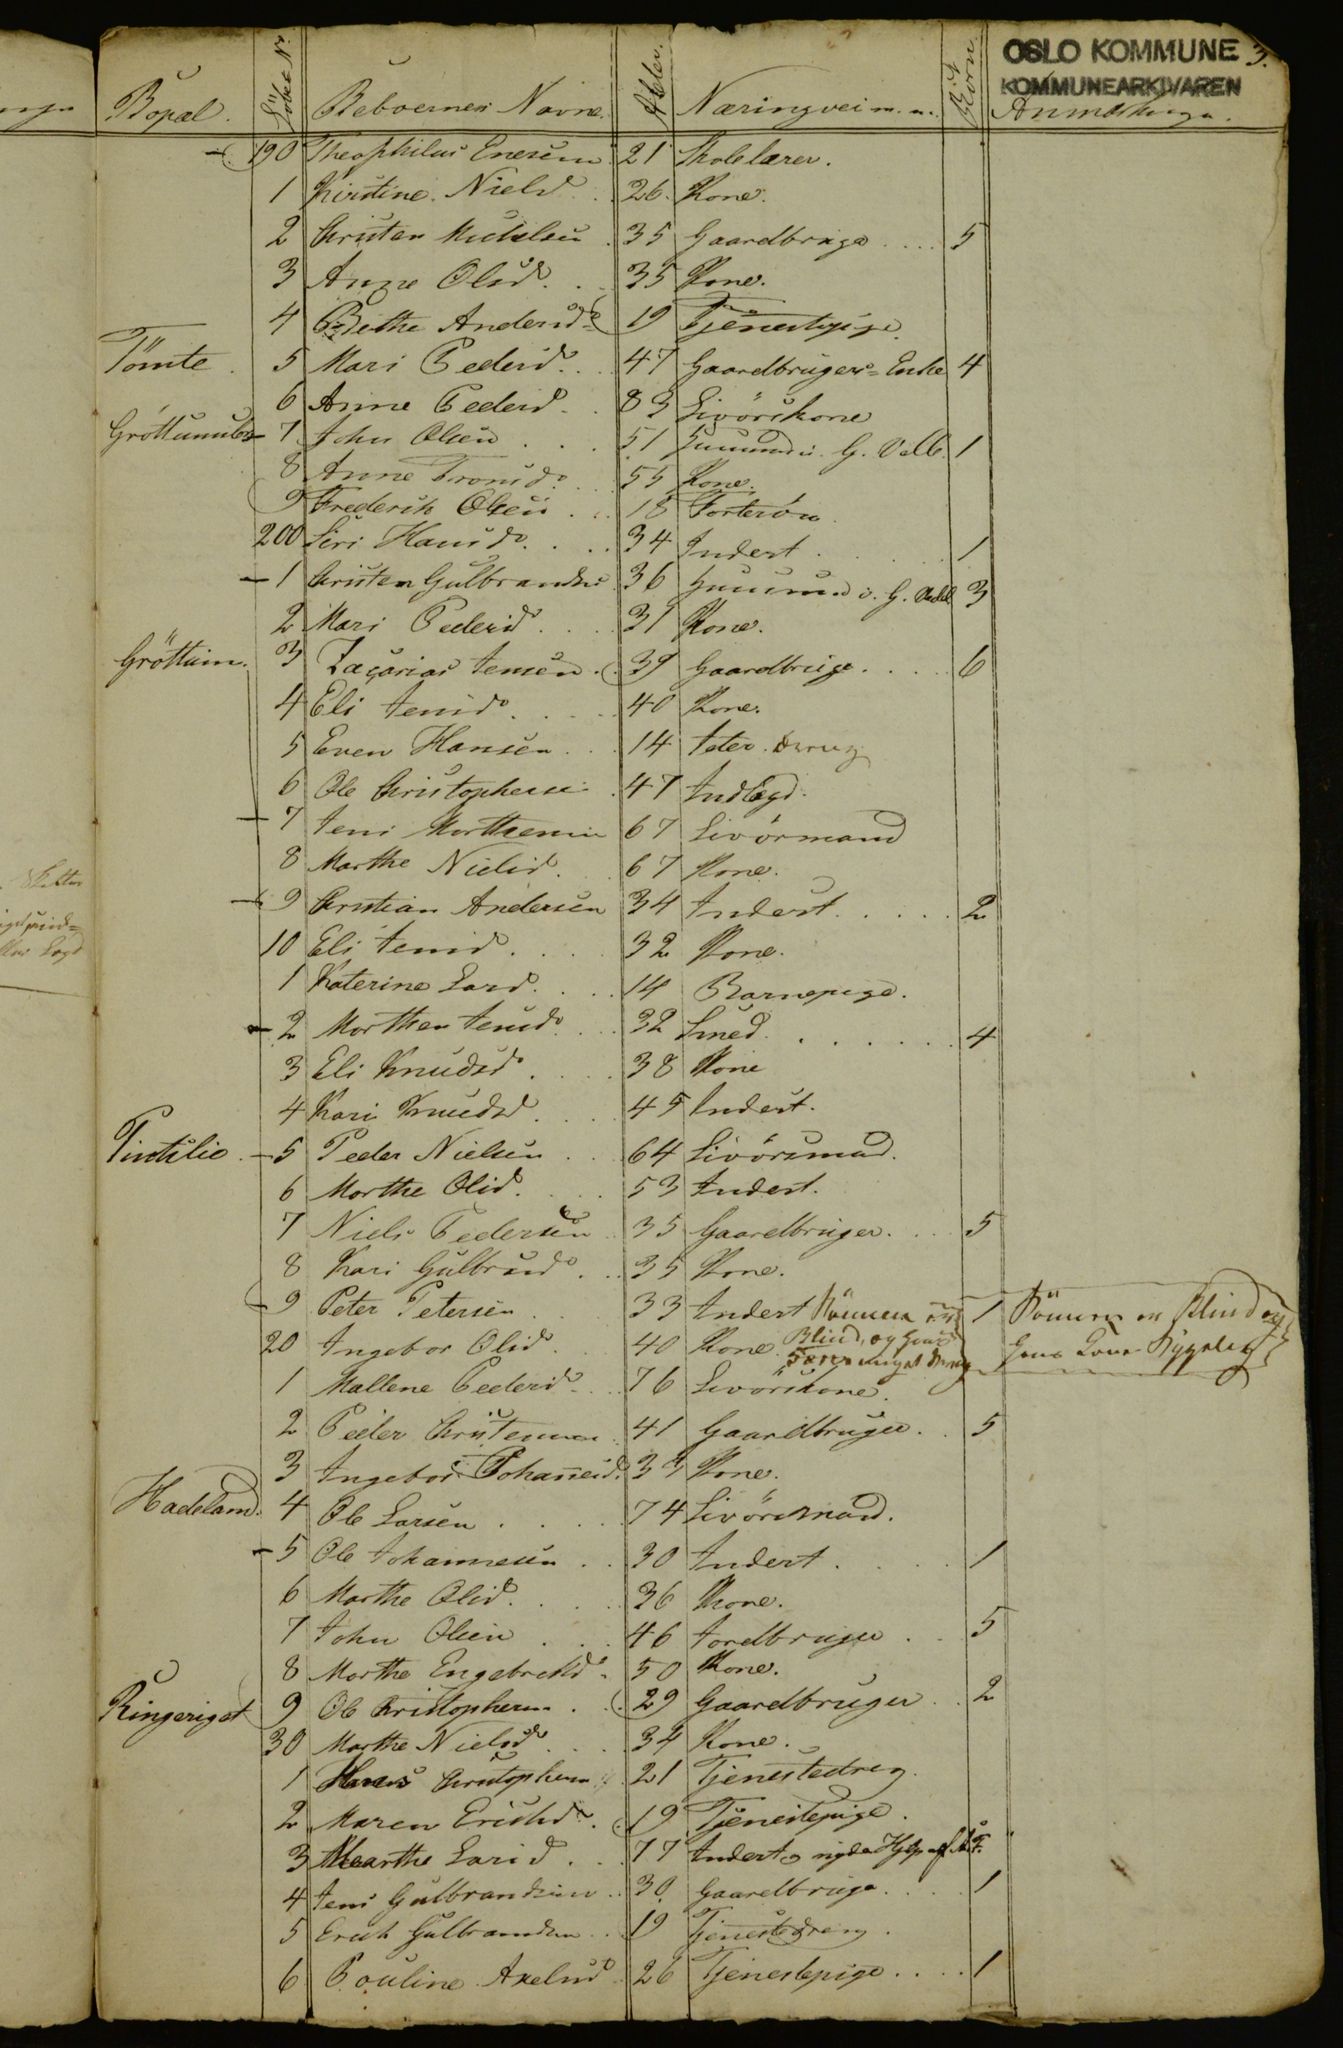 OSLO KOMMUNE 3.
KOMMUNEARKIVAREN
Bopæl. Löbe Nr. Beboernes Navne. Alder. Næringvei m. m. Börn
190 Theophilus Enersen 21 Skolelærer.
1 Kirstine Nielsd 26. Kone.
2 Christen 35 Gaardbruger .... 5
3 Anne Olsd. 35 Kone.
4 Berthe Andersd 19 Tjenestepige.
Tömte. 5 Mari Pedersd. 47 Gaardbruger-Enke 4
6 Anne Pedersd. 83 Livörskone
7 John Olsen 51 Huusmd u. G. Valb. 1
8 Anne 55 Kone.
9 Frederik Olsen 18
200 Siri Hansd. 34 Inderst. 1
1 Christen Gulbrandsen 36 3
2 Mari Pedersd. 31 Kone.
Gröttum. 3 Zacarias Jensen. 39 Gaardbruger .... 6
4 Eli Jensd. 40 Kone.
5 Even Hansen 14
6 Ole Christophersen 47 Indlagd.
7 Jens Morthensen 67 Livörmand
8 Marthe Nielsd. 67 Kone.
9 Christian Andersen 34 Inderst .... 2
10 Eli Jensd. 32 Kone.
1 Katerine Larsd. 14 Barnepige.
2 Morthen Jensen 32 Smed. .... 4
3 Eli Knudsd. 38 Kone
4 Kari Knudsd. 45 Inderst.
Pintslie. 5 Peder Nielsen 64 Livörsmand.
6 Marthe Olsd. 53 Inderst.
7 Niels Pedersen 35 Gaardbruger. 5
8 Kari Gulbrandsd. 35 Kone.
9 Peter Petersen 33 Inderst 1 er Blind og
20 Ingebor Olsd. 40 Kone. Blind, og hans
hans Kone Sygelig
1 Mallene Pedersd. 76 Livörskone.
2 Peder Christensen 41 Gaardbruger. 5
3 Ingebor Johannesd. 33 Kone.
Hadeland. 4 Ole Larsen 74 Livörsmand.
5 Ole Johannesen 30 Inderst. 1
6 Marthe Olsd. 36 Kone.
7 John Olsen 46 Jordbruger 5
8 Marthe Engebretsd. 50 Kone.
Ringeriget 9 Ole Christophersen. 29 Gaardbruger .. 2
30 Marthe Nielsd. 34 Kone.
1 Hans Christophersen 21 Tjenestedreng.
2 Maren Erichsd. 19 Tjenestepige.
3 Marthe Larsd. 77 Inderst, nyder Hjelp af
4 Jens Gulbrandsen 30 Gaardbruger .... 1
5 Erich Gulbrandsen 19 Tjenestedreng.
6 Pouline Axelsd. 26 Tjenestepige .... 1